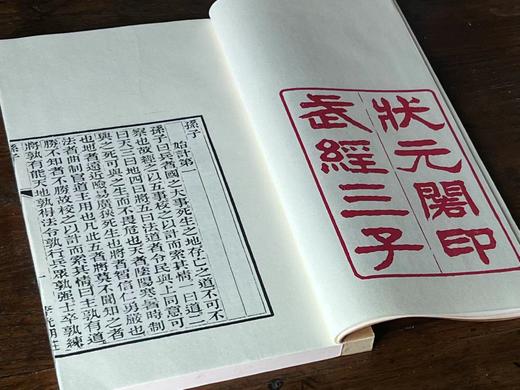 狀元閣印
武經三子
孫子
始計第一
孫子曰兵者國之大事死生之地存亡之道不可不
察也故經之以五事校之以計而索其情一曰道二
曰天三曰地四曰將五曰法道者令民與上同意可
與之死可與之生而不畏危也天者陰陽寒暑時制
也地者遠近險易廣狹死生也將者智信仁勇嚴也
法者曲制官道主用也凡此五者將莫不聞知之者
勝不知者不勝故校之以計而索其情曰主孰有道
將孰有能天地孰得法令孰行兵眾孰強士卒孰練
孫子
李光明莊